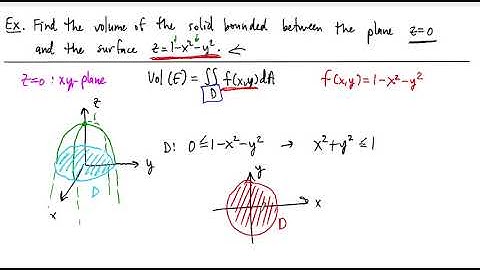 Ex. Find the volume of the solid bounded between the plane z=0
and the surface z=1-x²-y².
z=0: xy-plane
Vol(E) = ∬ f(x,y)dA
D
f(x,y)=1-x²-y²
z
1
y
x
D
D: 0≤1-x²-y² → x²+y²≤1
y
x
D